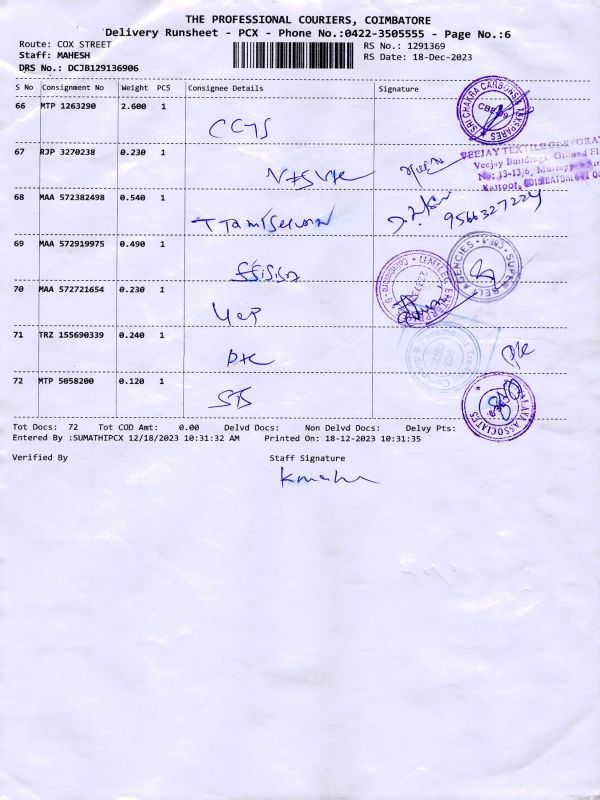 THE PROFESSIONAL COURIERS, COIMBATORE
Delivery Runsheet - PCX - Phone No.:0422-3505555 - Page No.:6
Route: COX STREET
RS No.: 1291369
Staff: MAHESH
RS Date: 18-Dec-2023
DRS No.: DCJB129136906
S No Consignment No Weight PCS Consignee Details Signature
66 MTP 1263290 2.600 1
SRI CHAKRA CARBONSS
CBE-9
67 RJP 3270238 0.230 1
VEEJAY TEXTILE CORPORAT
Veejay Buildings Ground Fl
No: 13-13/6,
Kattoor, COIMBATORE-641 00
68 MAA 572382498 0.540 1
T Tamilselvan
9566327224
69 MAA 572919975 0.490 1
SUPER AGENCIES
70 MAA 572721654 0.230 1
UCP
71 TRZ 155690339 0.240 1
DTC
72 MTP 5058200 0.120 1
STS
ASSOCIATES
Tot Docs: 72 Tot COD Amt: 0.00 Delvd Docs: Non Delvd Docs: Delvy Pts:
Entered By :SUMATHIPCX 12/18/2023 10:31:32 AM Printed On: 18-12-2023 10:31:35
Verified By Staff Signature